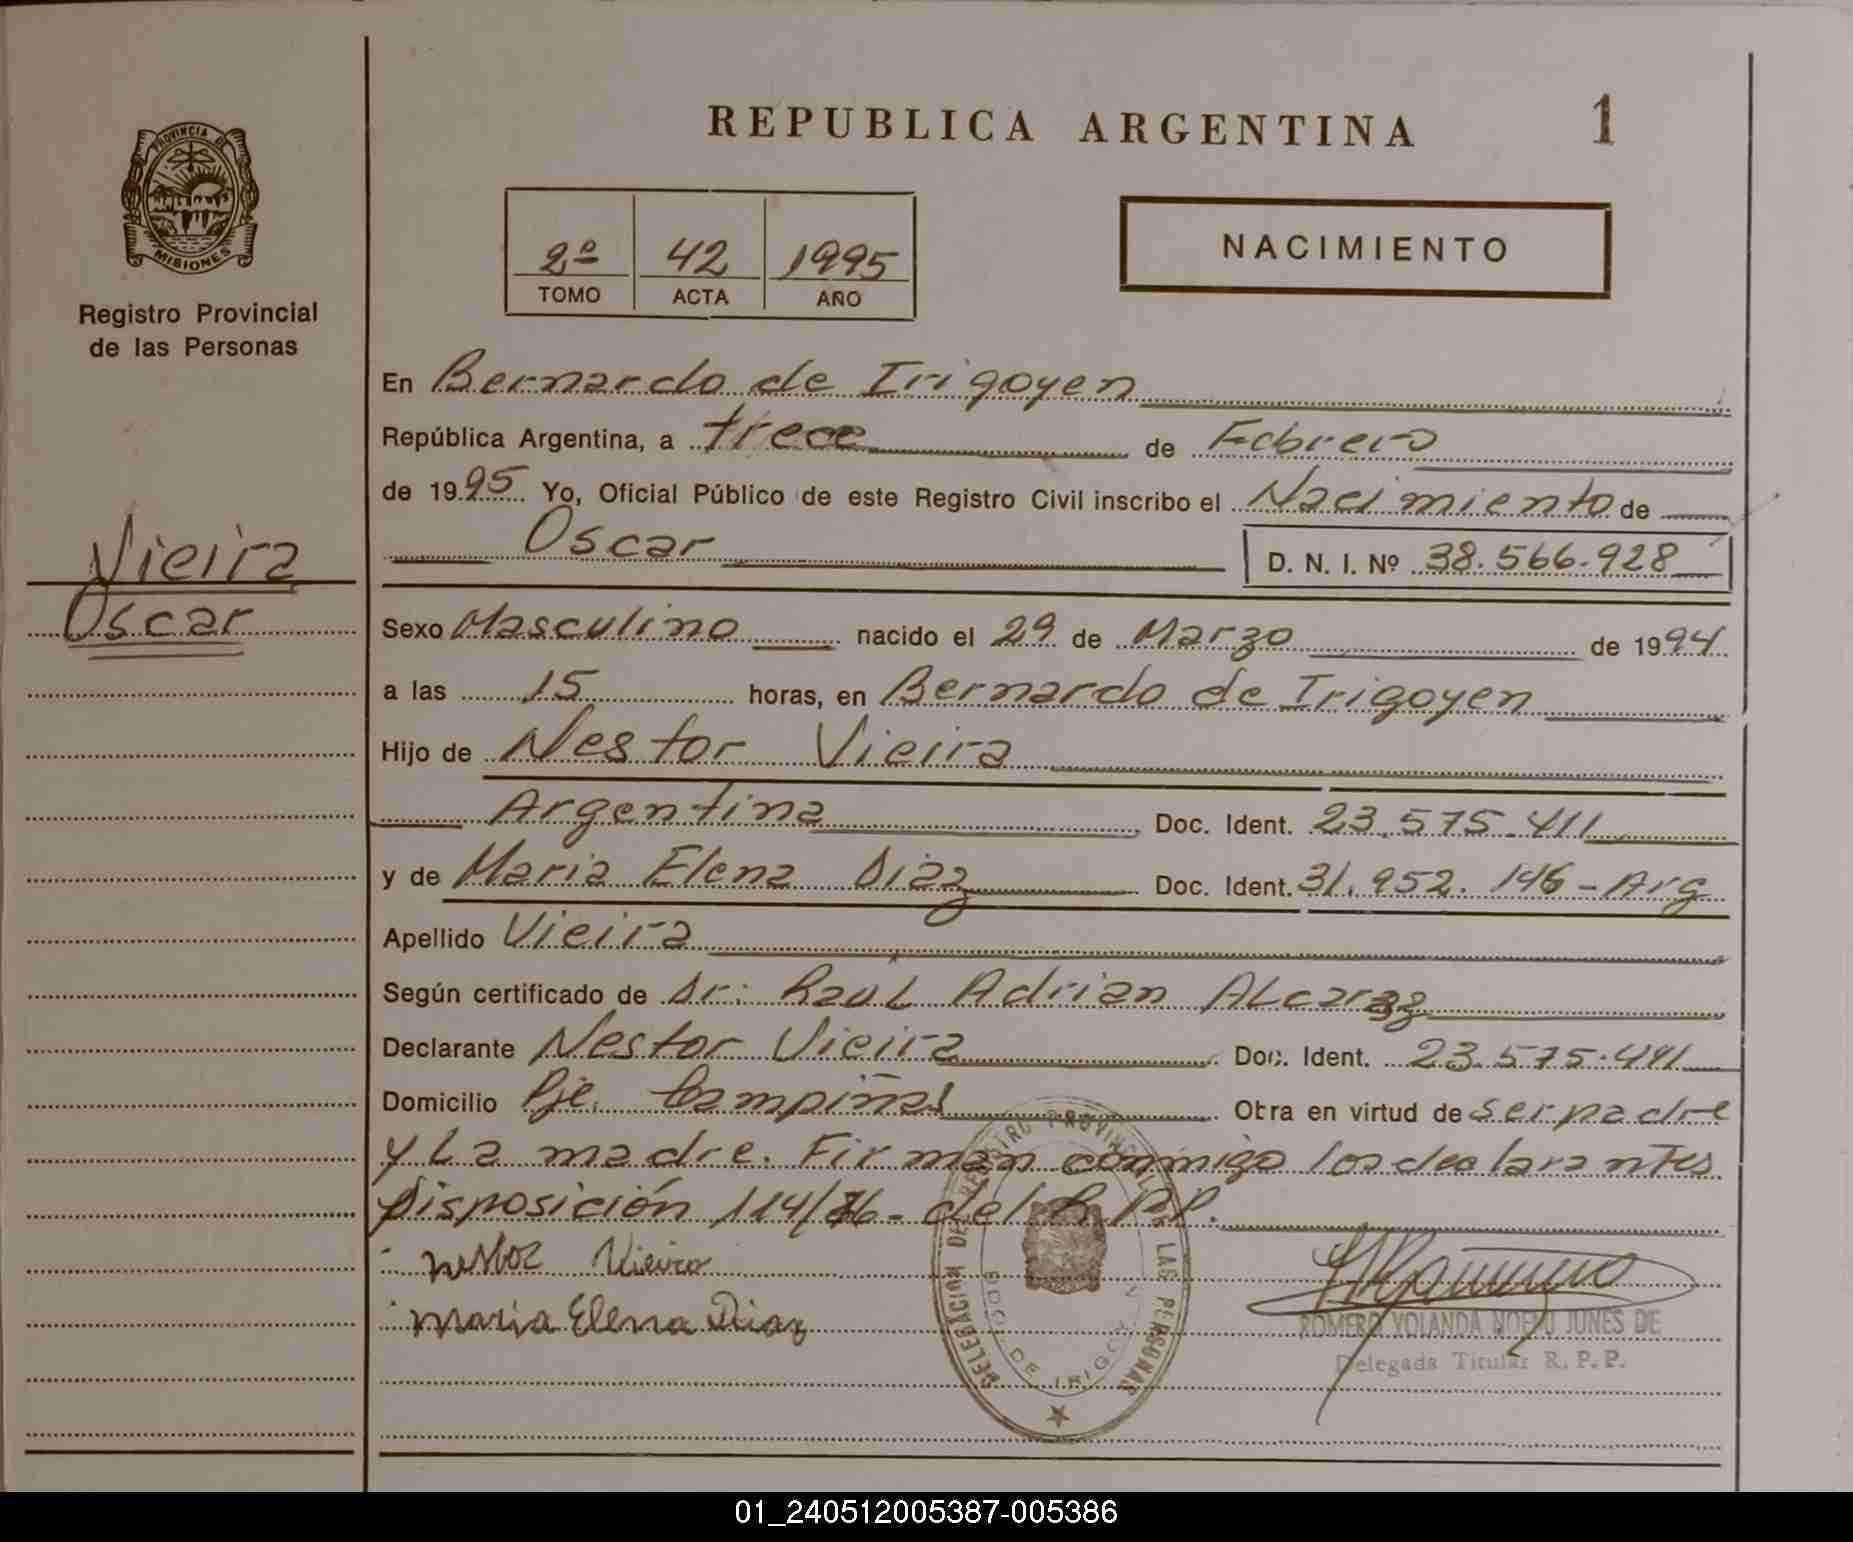 REPUBLICA ARGENTINA 1
PROVINCIA DE
MISIONES
Registro Provincial
de las Personas
2º 42 1995
TOMO ACTA AÑO
NACIMIENTO
Vieira
Oscar
En Bernardo de Irigoyen
República Argentina, a trece de Febrero
de 1995 Yo, Oficial Público de este Registro Civil inscribo el Nacimiento de
Oscar D. N. I. Nº 38.566.928
Sexo Masculino nacido el 29 de Marzo de 1994
a las 15 horas, en Bernardo de Irigoyen
Hijo de Nestor Vieira
Argentina Doc. Ident. 23.575.411
y de Maria Elena Diaz Doc. Ident. 31.952.146 - Arg
Apellido Vieira
Según certificado de Dr: Raul Adrian ALcaraz
Declarante Nestor Vieira Doc. Ident. 23.575.441
Domicilio Pje. Campiñas Otra en virtud de ser padre
y La madre. Firman conmigo los declarantes
Disposición 114/76 - del R.P.P.
Nestor Vieira
Maria Elena Diaz
DELEGACION DEL REGISTRO PROVINCIAL DE LAS PERSONAS
BDO. DE IRIGOYEN
ROMERO YOLANDA JUNES DE
Delegada Titular R. P. P.
01_240512005387-005386